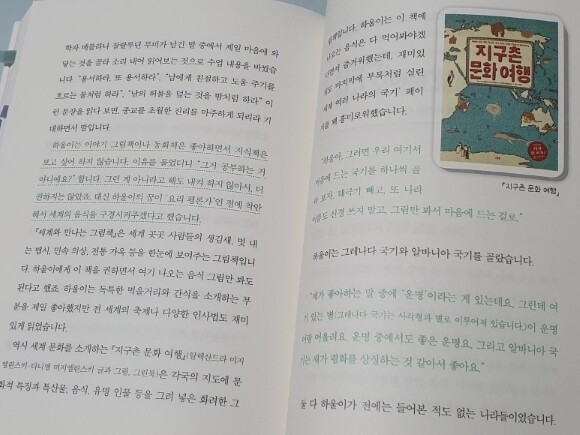 학자 메블라나 잘랄루딘 루미가 남긴 말 중에서 제일 마음에 와
닿는 것을 골라 소리 내어 읽어보는 것으로 수업 내용을 바꿨습
니다. "용서하라, 또 용서하라", "남에게 친절하고 도움 주기를
흐르는 물처럼 하라", "남의 허물을 덮는 것을 밤처럼 하라" 이
런 문장을 읽다 보면, 종교를 초월한 진리를 마주하게 되리라 기
대하면서 말입니다.
하윤이는 이야기 그림책이나 동화책은 좋아하면서 지식책은
보고 싶어 하지 않습니다. 이유를 물었더니 "그거 공부하는 거
아니에요?" 합니다. 그런 게 아니라고 해도 내켜 하지 않아서, 더
권하지는 않았죠. 대신 하윤이의 꿈이 '요리 평론가'인 점에 착안
해서 세계의 음식을 구경시켜주겠다고 했습니다.
『세계와 만나는 그림책』은 세계 곳곳 사람들의 생김새, 멋 내
는 법시, 민속 의상, 전통 가옥 등을 한눈에 보여주는 그림책입니
다. 하윤이에게 이 책을 권하면서 여기 나오는 음식 그림만 봐도
된다고 했죠. 하윤이는 독특한 먹을거리와 간식을 소개하는 부
분을 제일 좋아했지만 전 세계의 축제나 다양한 인사법도 재미
있게 읽었습니다.
역시 세계 문화를 소개하는 『지구촌 문화 여행』(알렉산드라 미지
엘린스키·다니엘 미지엘린스키 글과 그림, 그린북)은 각국의 지도에 문
화적 특징과 특산물, 음식, 유명 인물 등을 그려 넣은 화려한 그
림책입니다. 하윤이는 이 책에
나오는 음식은 다 먹어봐야겠
다면서 즐거워했는데, 재미있
게도 마지막에 부록처럼 실린
'세계 여러 나라의 국기' 페이
지를 꽤 흥미로워했습니다.
지구촌
문화 여행
『지구촌 문화 여행』
"하윤아, 그러면 우리 여기서
마음에 드는 국기를 하나씩 골
라 보자. 태극기 빼고, 또 나라
이름도 신경 쓰지 말고, 그림만 봐서 마음에 드는 걸로."
하윤이는 그레나다 국기와 알바니아 국기를 골랐습니다.
"제가 좋아하는 말 중에 '운명'이라는 게 있는데요, 그런데 여
기 있는 별(그레나다 국기는 사각형과 별로 이루어져 있습니다)이 운명
이랑 어울려요. 운명 중에서도 좋은 운명요. 그리고 알바니아 국
기는 새가 평화를 상징하는 것 같아서 좋아요."
둘 다 하윤이가 전에는 들어본 적도 없는 나라들이었습니다.